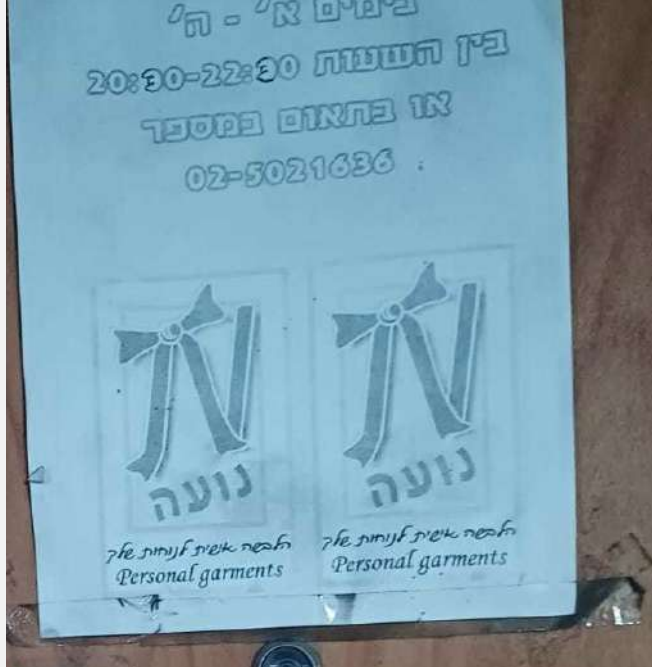 בימים א' - ה'
בין השעות 20:30-22:30
או בתאום במספר
02-5021636
נועה
הלבשה אישית לנוחות שלך
Personal garments
נועה
הלבשה אישית לנוחות שלך
Personal garments